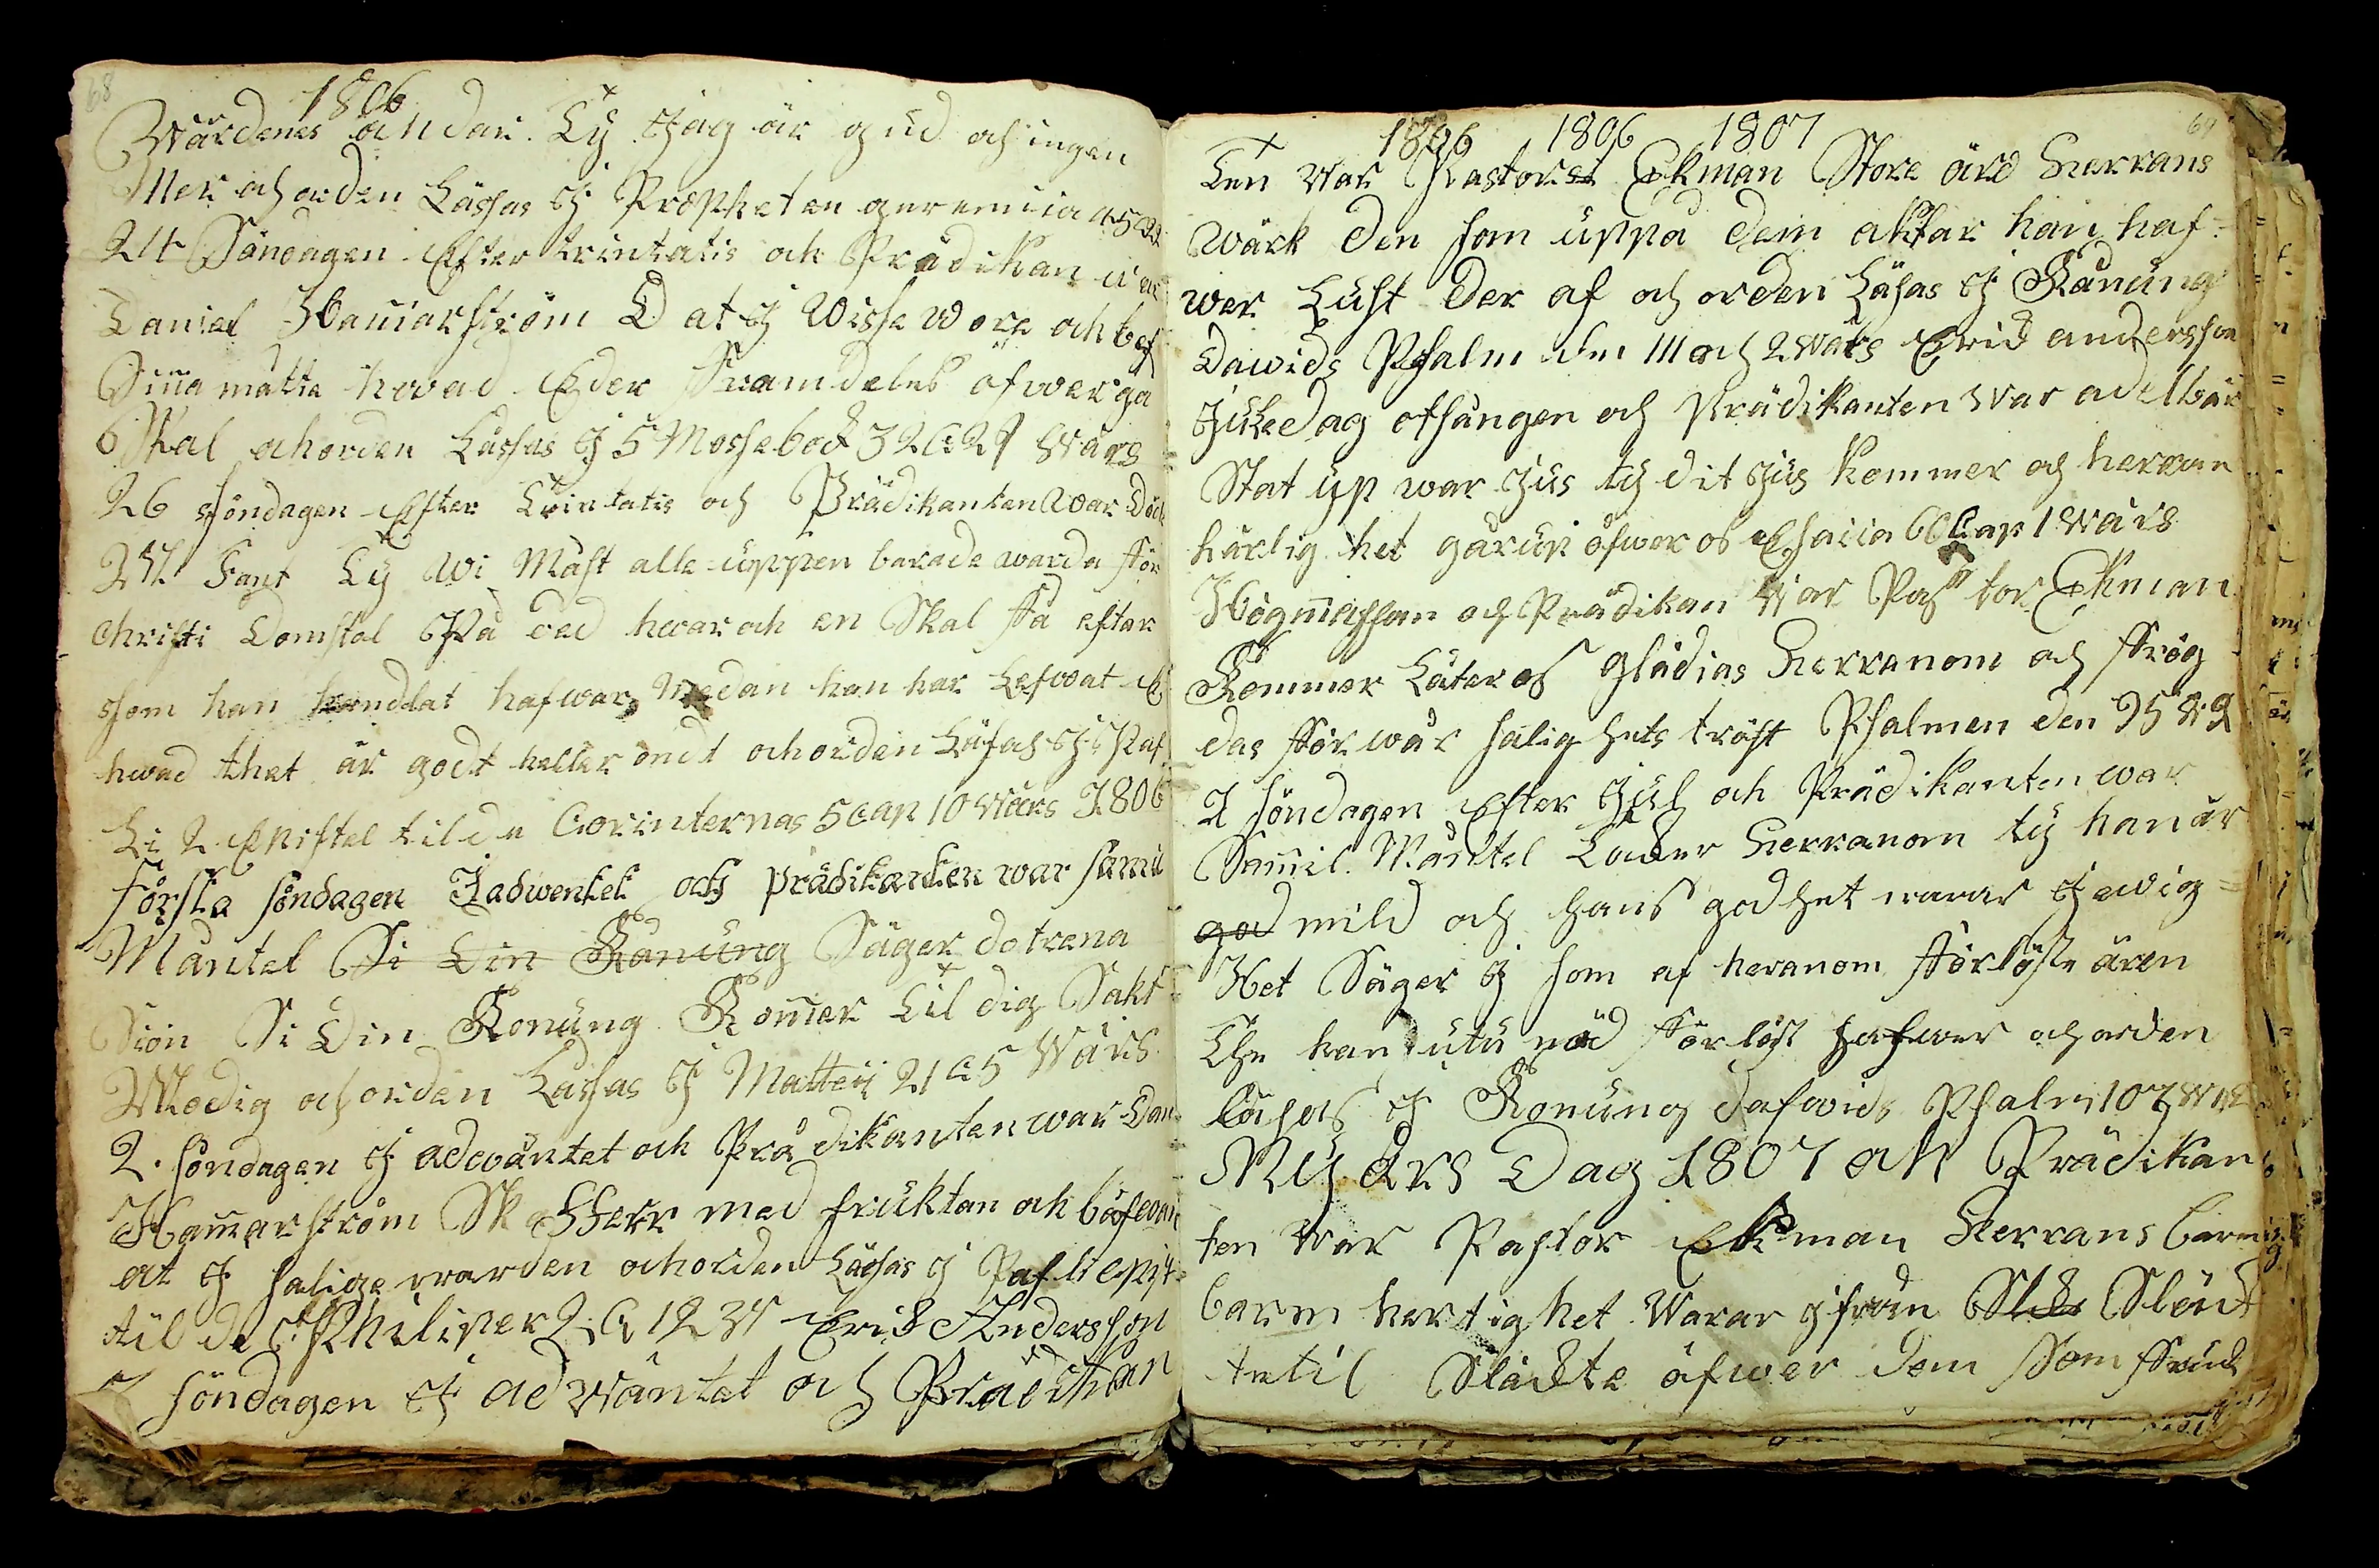 68
1806
Wärdenes ändar. Ty Jag är gud ach ingen
Mer ach orden Lässas J Propheten
24 Söndagen Efter trintatis och Prädikan war
Daniel Hamarström D at J Wisse Wore och bes
Sinna måtte hwad Eder Framdeles öfwergå
Skal achorden Lässas J 5 Mossebock 32 C 29 Wärs
26 söndagen Efter Trintatis och Prädikanten war
Ty Wi Måst alle uppen barade warda för
Christi Domstol På ded hwar och en Skal få efter
som han handlat hafwar Medan han har Lefwat
hwad thet är godt heller ondt ochorden Läsas J Paf
Li 2 Epistel til de Corinternas 5 Cap 10 Wärs 1806
första söndagen Jadwentet och prädikanten war samil
Mantel Si Din Konung Säger dotrena
Sion Si Din Konung Komer til dig Sakt
Modig och orden Lässas J Matteij 21 C 5 Wärs
2. söndagen J adwäntet och Prädikanten war Dan
Hamarström med fruktan och bäfwan
at J salige warden achorden Läsas J Pafli epist
til de Philiper 2 C 12 Erik Andersson
söndagen J adwäntet och Prädikan
1806 1806 1807
69
Ten war Pastorst Ekman Store ärd Herrans
Wärk den som uppå dem aktar han haf=
wer Lust der af och orden Läsas J Kånung
Dawids Psalm den 111 och 2 wärs Erik andersson
Juledag otsången och Prädikanten war adelbär
Stat up war Jus ty dit Jus kommer och herran
härlig het går up öfwer os Esaiia 60 Cap 1 wärs
Högmässan och Prädikan war Pastor Ekman
Kommer Låter os glädias Herranom och frög
das för wår salighets tröst Psalmen den 95
2 söndagen Efter Jul och Prädikanten war
Samil. Mantel Låder Herranom ty han är
god mild och hans godhet warar J ewig=
Het Säger J som af heranom förlöste ären
The han utu nöd förlöst hafwer och orden
läsas J Konung dafwids Psalm 107
Ny års Dag 1807 och Prädikan
ten war Pastor Ekman Herrans barm
barm hertighet Warar jfrån Släk Släck
te til Släckte öfwer dem som fruck